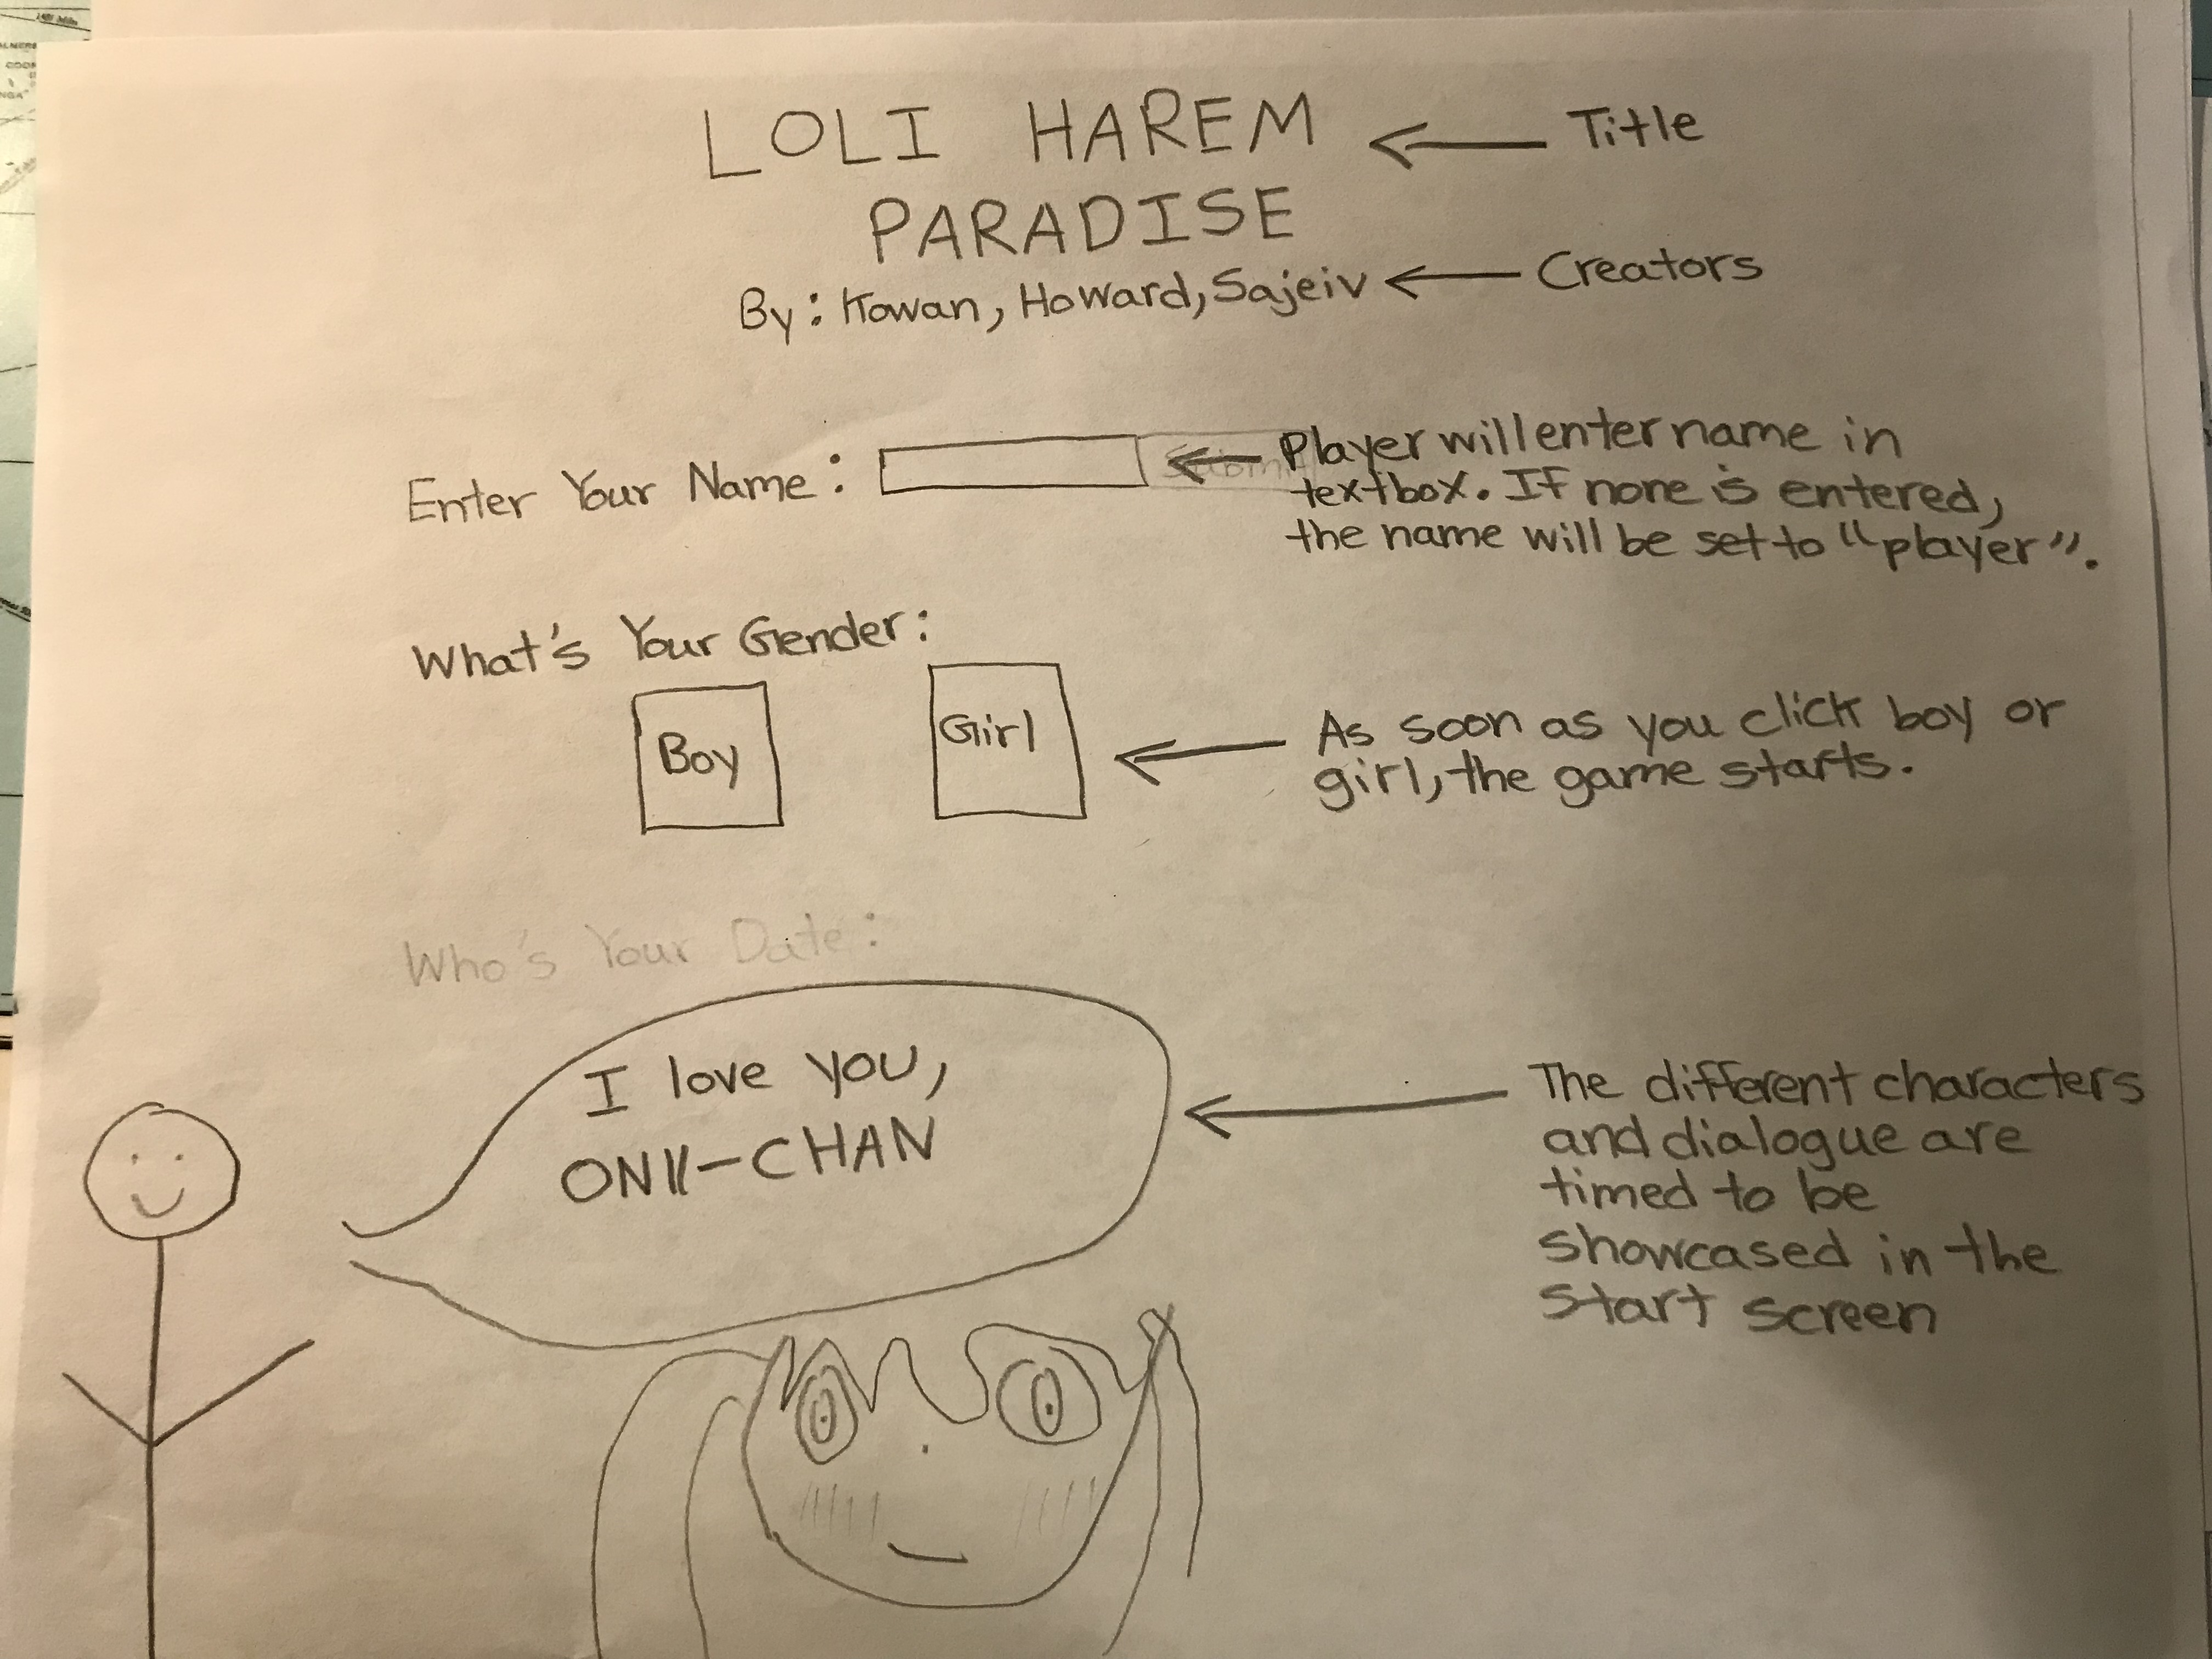 LOLI HAREM ← Title
PARADISE
By: Kowan, Howard, Sajeiv ← Creators
Enter Your Name: ← Player will enter name in
textbox. If none is entered,
the name will be set to "player".
What's Your Gender:
Boy Girl ← As soon as you click boy or
girl, the game starts.
Who's Your Date:
I love you,
ONII-CHAN
← The different characters
and dialogue are
timed to be
showcased in the
start screen